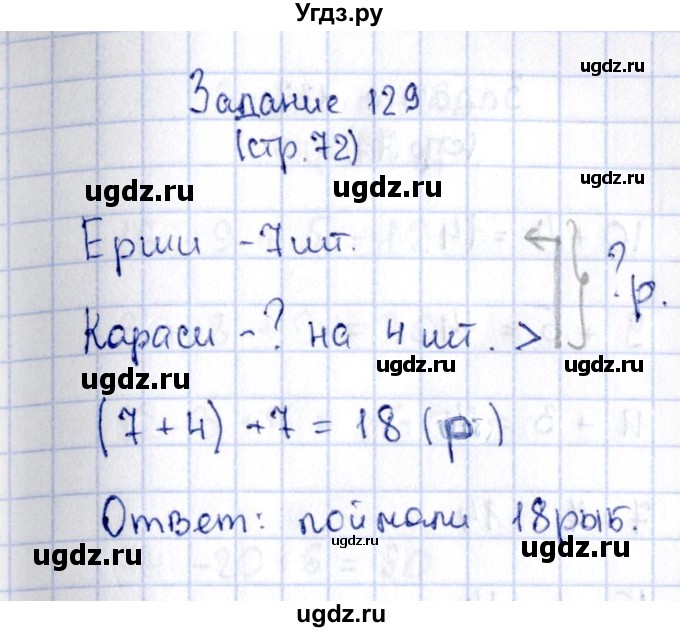 Угдз.ру
ugdz.ru
Задание 129
(стр.72)
ugdz.ru ugdz.ru ugdz.ru
Ерши - 7 шт.
? р.
Караси - ? на 4 шт. >
ugdz.ru ugdz.ru ugdz.ru
(7 + 4) + 7 = 18 (р)
Ответ: поймали 18 рыб.
ugdz.ru ugdz.ru ugdz.ru
ugdz.ru